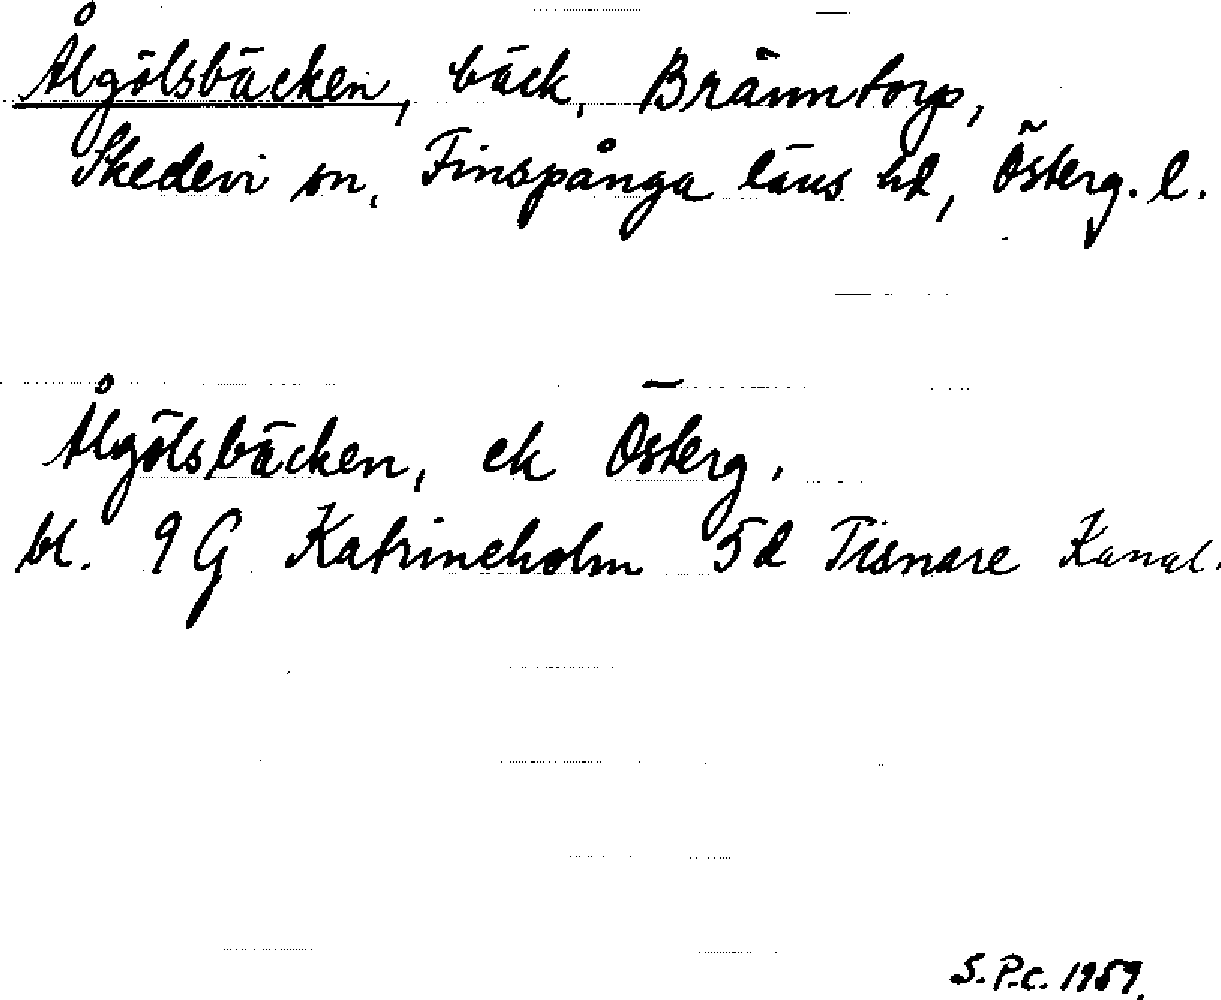 Ålgölsbäcken, bäck, Bränntorp,
Skedevi sn, Finspånga läns hd, Österg. l.
Ålgölsbäcken, ek Österg.
bl. 9 G Katrineholm 5d Tisnare Kanal.
S.P.c. 1959.